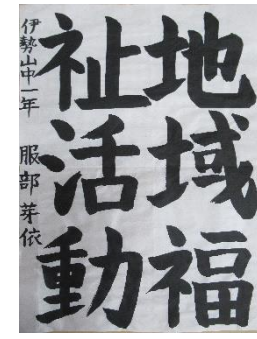 地域福
祉活動
伊勢山中一年 服部芽依